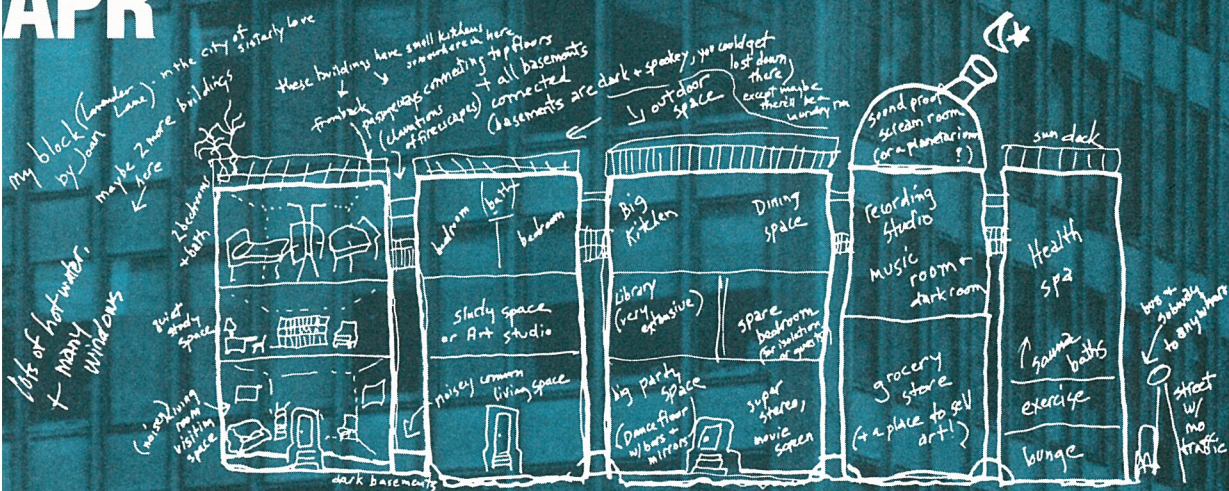 APR
my block (Lavander Lane) - in the city of sisterly love
by Joan
maybe 2 more buildings
here
these buildings have small kitchens
somewhere in here
from back
passageways connecting top floors
(elevations of firescapes) + all basements
connected
(basements are dark + spookey, you could get
lost down
there)
except maybe
there'll be a
laundry rm
outdoor
space
lots of hot water,
+ many
windows
2 bedrooms
+ bath
quiet
study
space
(noisey) living
room
visiting
space
dark basements
bedroom
(bath)
bedroom
study space
or Art studio
noisey common
living space
Big
Kitchen
Dining
space
Library
(very
extensive)
spare
bedroom
(for isolation
or guests)
big party
space
(Dance floor
w/bars +
mirrors)
super
stereo,
movie
screen
sound proof
scream room
(or a planetarium
?)
recording
studio
music
room +
darkroom
grocery
store
(+ a place to sell
art!)
sun deck
Health
spa
sauna
baths
exercise
lounge
bus +
subway
to anywhere
street
w/
no
traffic